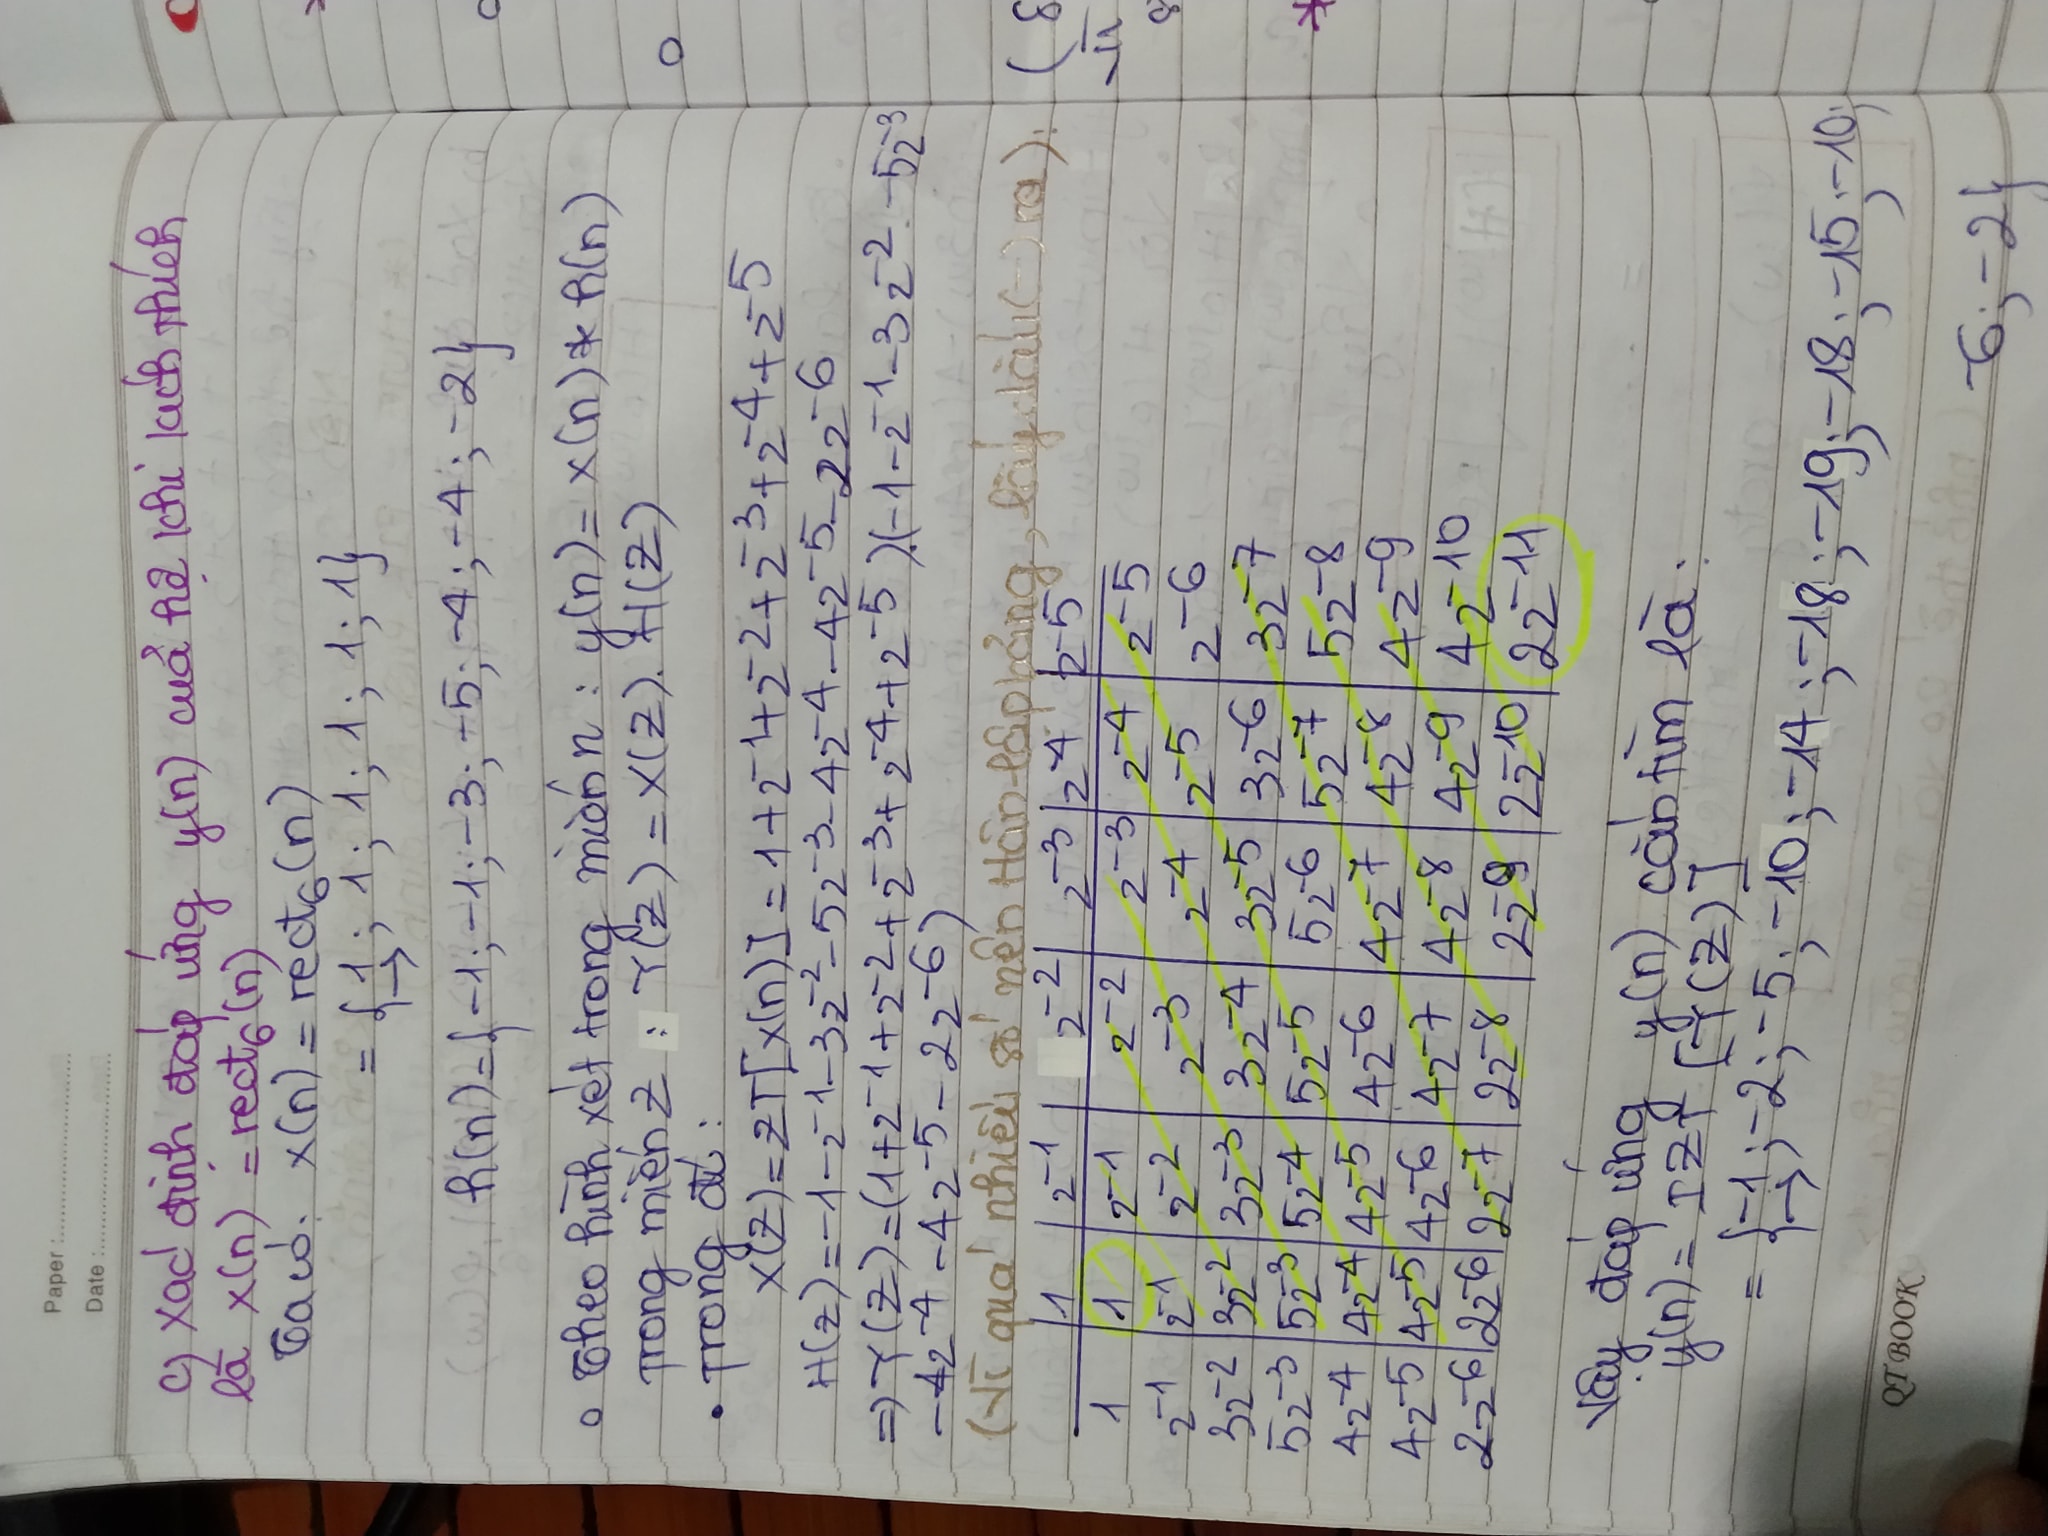 Paper :
Date :
c) Xác định đáp ứng y(n) của hệ khi kích thích
là x(n) = rect₆(n)
Ta có: x(n) = rect₆(n)
= {1; 1; 1; 1; 1; 1}
→
h(n) = {-1; -1; -3; -5; -4; -4; -2}
• Theo hình xét trong miền n : y(n) = x(n) * h(n)
Trong miền Z : Y(Z) = X(Z). H(Z)
• Trong đó:
X(Z) = ZT[x(n)] = 1 + z⁻¹ + z⁻² + z⁻³ + z⁻⁴ + z⁻⁵
H(z) = -1 - z⁻¹ - 3z⁻² - 5z⁻³ - 4z⁻⁴ - 4z⁻⁵ - 2z⁻⁶
=> Y(Z) = (1 + z⁻¹ + z⁻² + z⁻³ + z⁻⁴ + z⁻⁵).(-1 - z⁻¹ - 3z⁻² - 5z⁻³
- 4z⁻⁴ - 4z⁻⁵ - 2z⁻⁶)
(Vì quá nhiều số nên Hân lập bảng, lấy dấu (-) ra):
1 z⁻¹ z⁻² z⁻³ z⁻⁴ z⁻⁵
1 1 z⁻¹ z⁻² z⁻³ z⁻⁴ z⁻⁵
z⁻¹ z⁻¹ z⁻² z⁻³ z⁻⁴ z⁻⁵ z⁻⁶
3z⁻² 3z⁻² 3z⁻³ 3z⁻⁴ 3z⁻⁵ 3z⁻⁶ 3z⁻⁷
5z⁻³ 5z⁻³ 5z⁻⁴ 5z⁻⁵ 5z⁻⁶ 5z⁻⁷ 5z⁻⁸
4z⁻⁴ 4z⁻⁴ 4z⁻⁵ 4z⁻⁶ 4z⁻⁷ 4z⁻⁸ 4z⁻⁹
4z⁻⁵ 4z⁻⁵ 4z⁻⁶ 4z⁻⁷ 4z⁻⁸ 4z⁻⁹ 4z⁻¹⁰
2z⁻⁶ 2z⁻⁶ 2z⁻⁷ 2z⁻⁸ 2z⁻⁹ 2z⁻¹⁰ 2z⁻¹¹
Vậy đáp ứng y(n) cần tìm là:
y(n) = IZT [Y(Z)]
= {-1; -2; -5; -10; -14; -18; -19; -18; -15; -10;
→
-6; -2}
QT BOOK